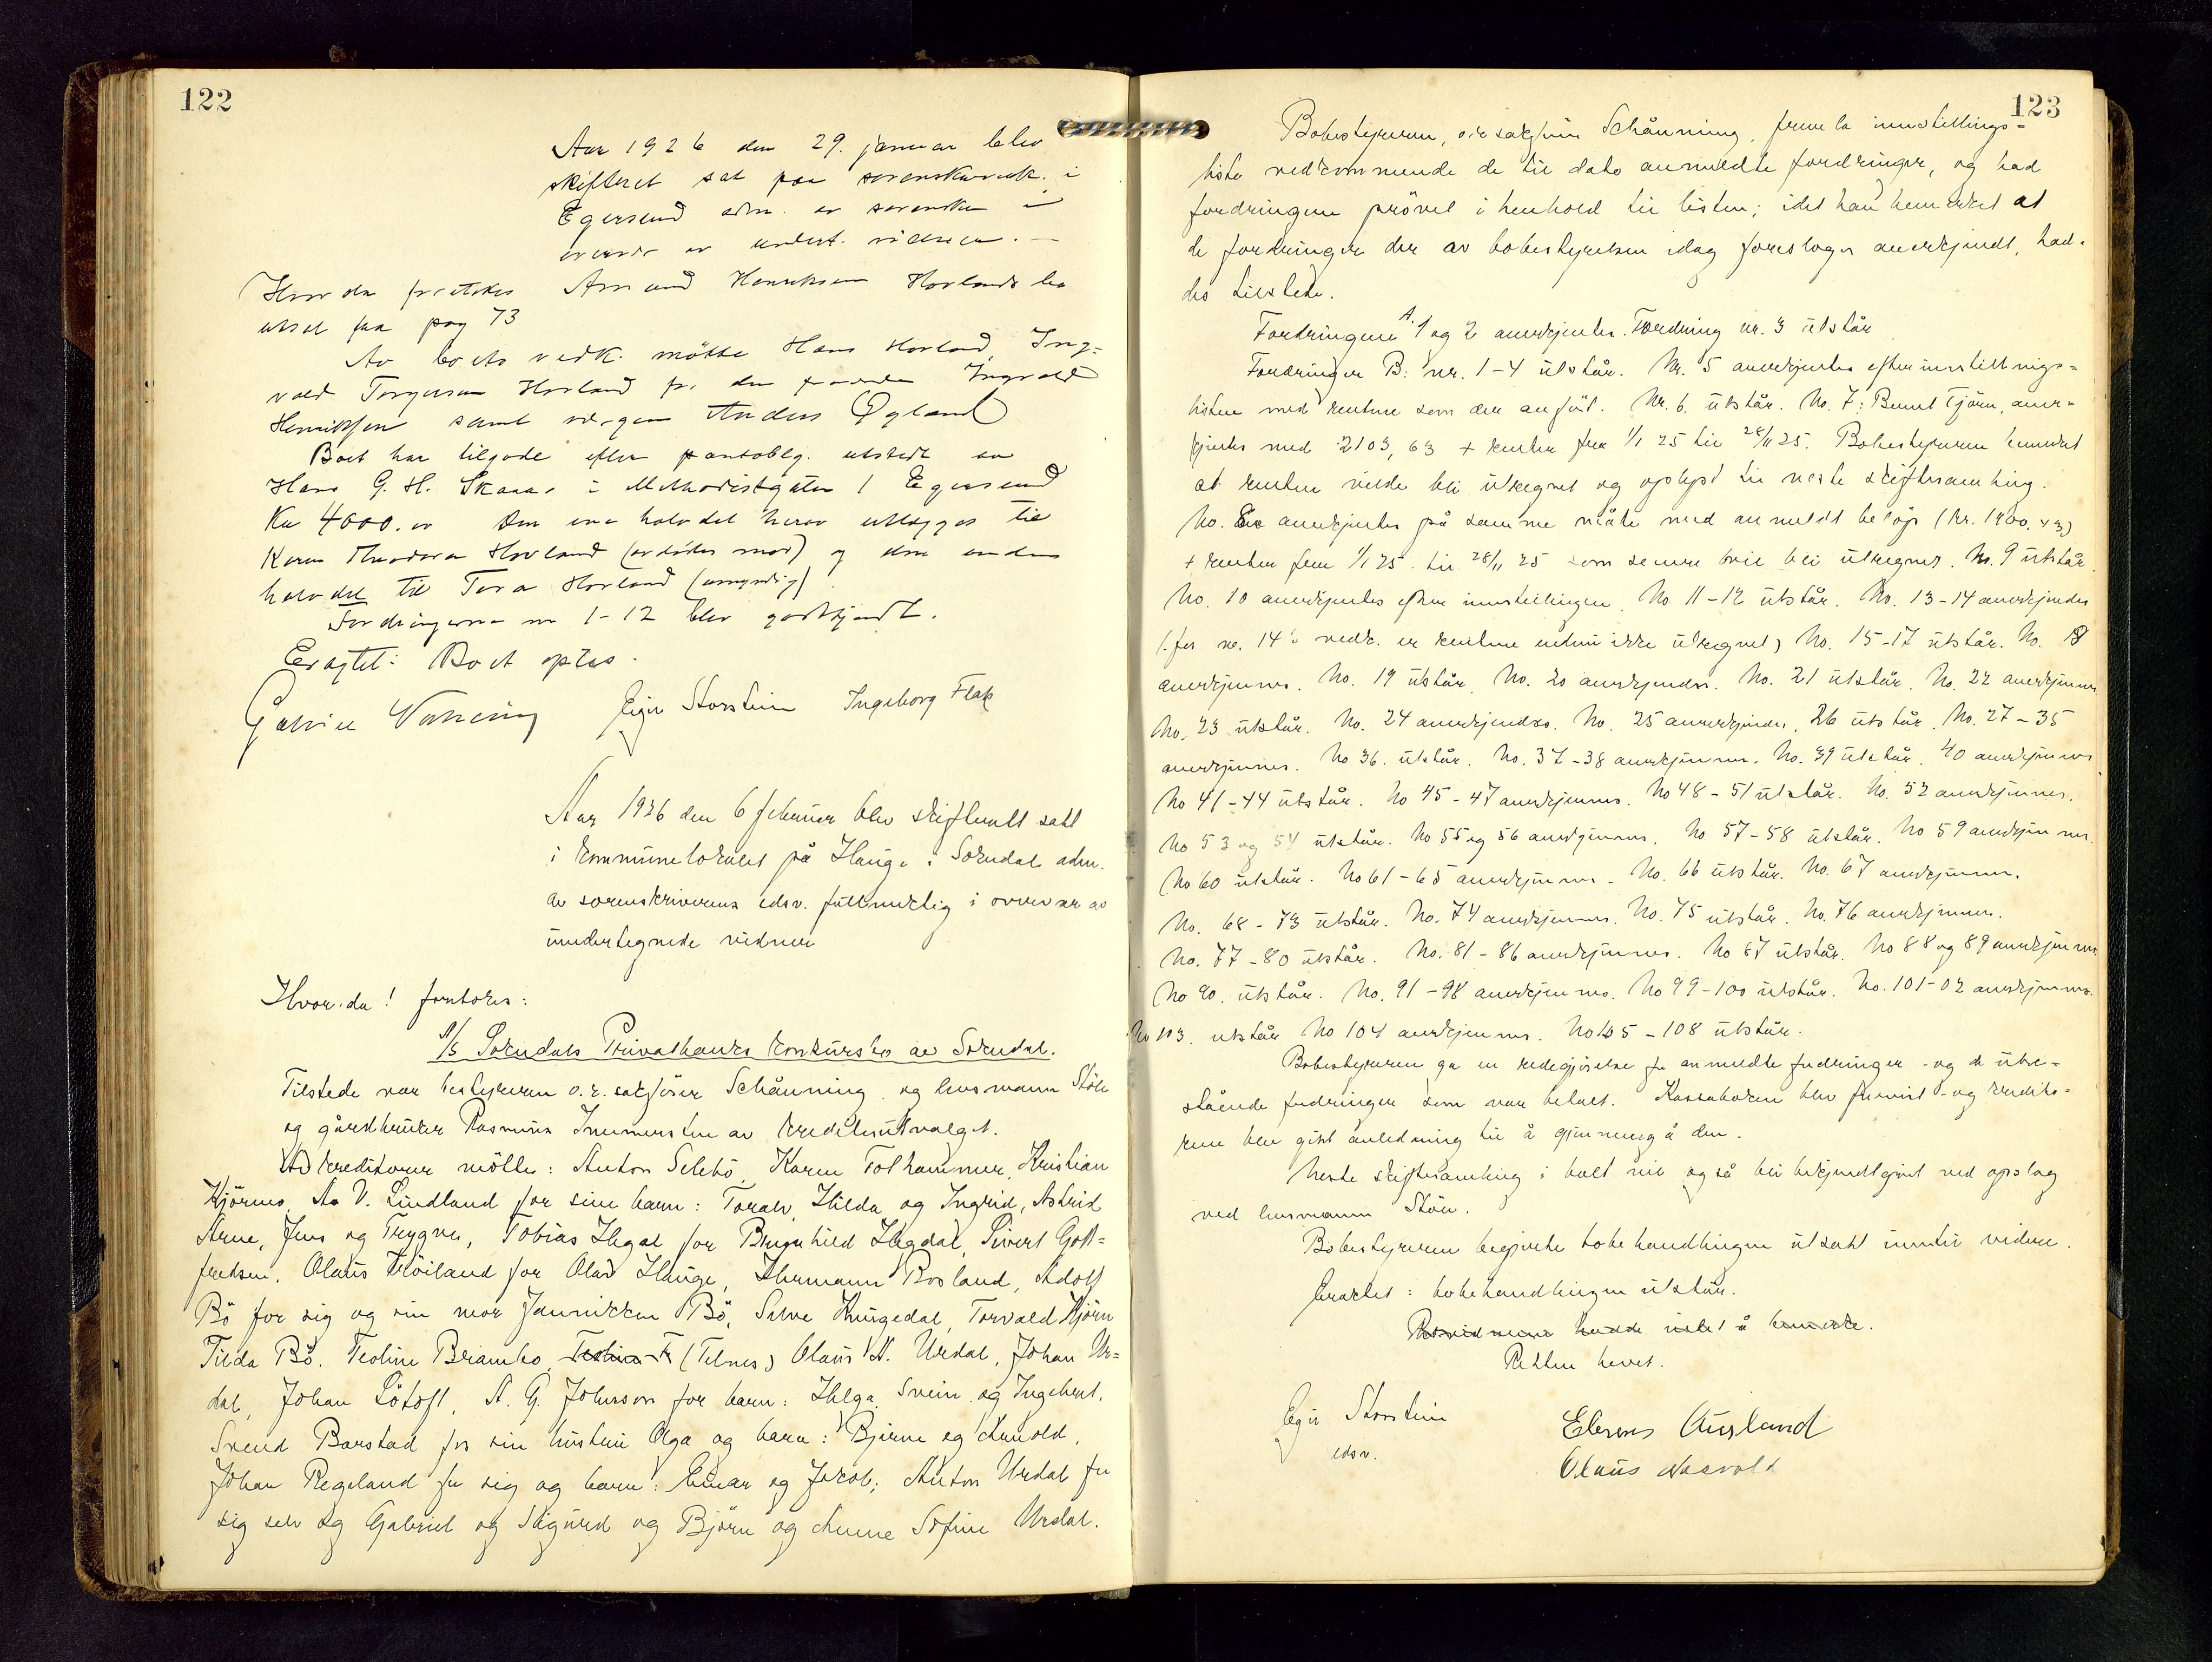 122
Aar 1926 den 29. januar blev
skifteret sat paa sorenskriverk. i
Egersund adm. av sorenskr. i
overvær av undert. vidner. —
Hvor da foretokes Amund Henriksen Hovlands bo
utsat fra pag 73
Av boets vedk. møtte Hans Hovland, Ing-
vald Torgersen Hovland for Ingvald
Henriksen samt vergen Anders Øgland
Boet har tilgode efter pantoblg. utstedt av
Hans G. H. Skaar i Methodistgaten 1 Egersund
Kr 4000. Den ene halvdel herav utlægges til
Karen Theodora Hovland (avdødes mor) og den anden
halvdel til Tora Hovland (umyndig)
Fordringerne nr 1-12 blev godkjendt.
Eragtet: Boet optas.
Eigil Storstein Ingeborg Flak
Aar 1926 den 6 februar blev skifterett satt
i kommunelokalet på Hauge i Sokndal adm.
av sorenskriverens edsv. fullmektig i overvær av
undertegnede vidner
Hvor da! foretokes:
A/S Sokndals Privatbanks konkursbo av Sokndal.
Tilstede var bestyreren o.r. sakfører Schånning og lensmann Stöle
og gårdbruker Rasmus Immerstein av kreditorutvalget.
Av kreditorer mötte: Anton Selebö, Karen Tothammer, Kristian
Kjörnes, Aa V. Lindland for sine barn: Toralv, Hilda og Ingrid, Astrid
Arne, Jens og Trygve, Tobias Hegdal for Brynhild Hegdal, Sivert Gott-
fredsen, Olaus Tröiland for Olav Hauge, Hermann Rosland, Adolf
Bö for sig og sin mor Jannikken Bö, Salve Haugedal, Torvald Hjörn
Tilda Bö. Teoline Brambo (Telnes) Olaus A. Urdal, Johan Ur-
dal, Johan Lötoft, A. G. Johnson for barn: Helga, Svein og Ingebret,
Svend Barstad for sin hustru Olga og barn: Bjarne og Arnold,
Johan Regeland for sig og barn: Einar og Jakob; Anton Urdal for
sig selv og Gabriel og Sigurd og Björn og Anne Sofine Urdal.
123
Bobestyreren, o.r. sakförer Schånning, frem la innstillings-
liste vedkommende de til dato anmeldte fordringer, og bad
fordringene prövet i henhold til listen; idet han bemerket at
de fordringer der av bobestyrelsen idag foreslåes anerkjendt, bad-
des tilstede.
Fordringene A. 1 og 2 anerkjentes. Fordring nr. 3 utstår
Fordringer B: nr. 1-4 utstår. Nr. 5 anerkjentes efter innstillings-
listen med rentene som der anfört. Nr. 6. utstår. No. 7: Bernt Tjörn, aner-
kjentes med 2103,63 + renter fra 1/1 25 til 28/11 25. Bobestyreren bemerket
at rentene vilde bli utregnet og oplyst til neste skiftesamling.
No. 8 anerkjentes på samme måte med anmeldt belöp (kr. 1900,43)
+ renter fra 1/1 25 til 28/11 25 som senere vil bli utregnet. No. 9 utstår.
No. 10 anerkjentes efter innstillingen. No 11-12 utstår. No. 13-14 anerkjendes
(for no. 14's vedk. er rentene endnu ikke utregnet) No. 15-17 utstår. No. 18
anerkjennes. No. 19 utstår. No. 20 anerkjendes. No. 21 utstår. No. 22 anerkjennes
No. 23 utstår. No. 24 anerkjendes. No. 25 anerkjendes. 26 utstår. No. 27-35
anerkjennes. No 36. utstår. No. 37-38 anerkjennes. No. 39 utstår. 40 anerkjennes
No 41-44 utstår. No 45-47 anerkjennes. No 48-51 utstår. No. 52 anerkjennes.
No 53 og 54 utstår. No 55 og 56 anerkjennes. No 57-58 utstår. No 59 anerkjennes.
No 60 utstår. No 61-65 anerkjennes. No. 66 utstår. No. 67 anerkjennes.
No. 68-73 utstår. No. 74 anerkjennes. No. 75 utstår. No. 76 anerkjennes.
No. 77-80 utstår. No. 81-86 anerkjennes. No 87 utstår. No 88 og 89 anerkjennes.
No 90. utstår. No. 91-98 anerkjennes. No 99-100 utstår. No. 101-02 anerkjennes.
No 103. utstår No 104 anerkjennes. No 105-108 utstår.
Bobestyreren ga en redegjörelse for anmeldte fordringer og de ute-
stående fordringer som var betalt. Kassaboken blev fremvist og kredito-
rene blev gitt anledning til å gjennemgå den.
Neste skiftesamling i boet vil også bli bekjendtgjort ved opslag
ved lensmann Stöle.
Bobestyreren begjærte bobehandlingen utsatt inntil videre.
Eraktet: bobehandlingen utstår.
Rettsvidnene hadde intet å bemerke.
Retten hevet.
Eigil Storstein
edsv.
Elenus Aursland
Olaus Naavold